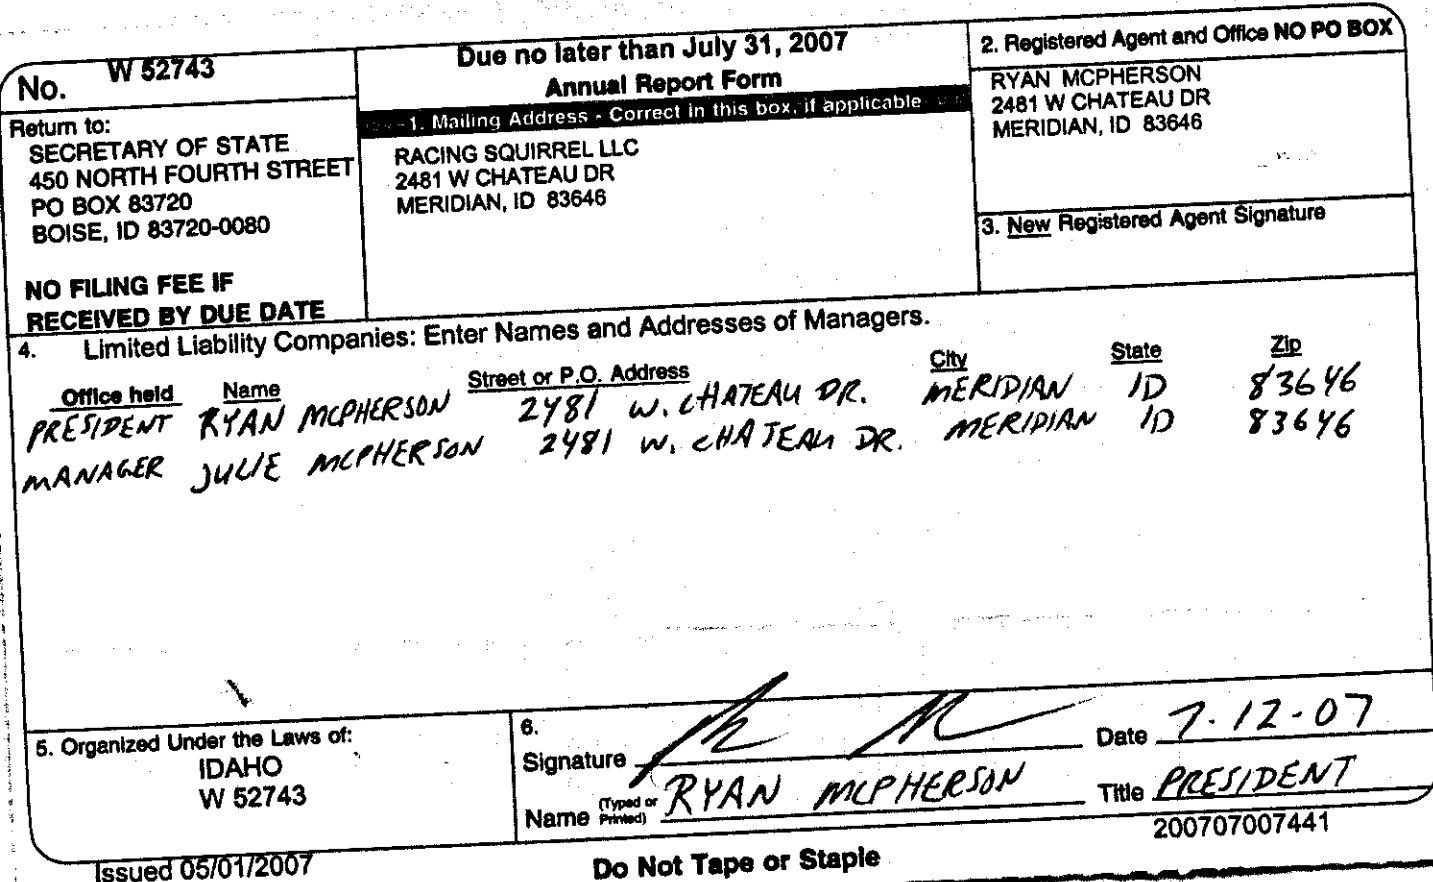 No. W 52743
Return to:
SECRETARY OF STATE
450 NORTH FOURTH STREET
PO BOX 83720
BOISE, ID 83720-0080
NO FILING FEE IF
RECEIVED BY DUE DATE
Due no later than July 31, 2007
Annual Report Form
1. Mailing Address - Correct in this box, if applicable
RACING SQUIRREL LLC
2481 W CHATEAU DR
MERIDIAN, ID 83646
2. Registered Agent and Office NO PO BOX
RYAN MCPHERSON
2481 W CHATEAU DR
MERIDIAN, ID 83646
3. New Registered Agent Signature
4. Limited Liability Companies: Enter Names and Addresses of Managers.
Office held Name Street or P.O. Address City State Zip
PRESIDENT RYAN MCPHERSON 2481 W. CHATEAU DR. MERIDIAN ID 83646
MANAGER JULIE MCPHERSON 2481 W. CHATEAU DR. MERIDIAN ID 83646
5. Organized Under the Laws of:
IDAHO
W 52743
6.
Signature Date 7-12-07
Name (Typed or Printed) RYAN MCPHERSON Title PRESIDENT
200707007441
Issued 05/01/2007
Do Not Tape or Staple